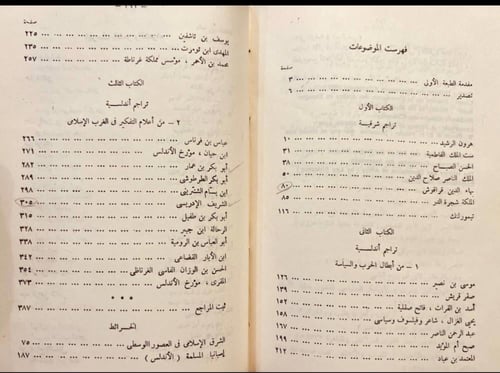 فهرست الموضوعات
صفحة
مقدمة الطبعة الأولى ... ٣
تصدير ... ٦
الكتاب الأول
تراجم شرقية
هرون الرشيد ... ١٠
ست الملك الفاطمية ... ٣١
الحسن الصباح ... ٣٨
الملك الناصر صلاح الدين ... ٥٠
بهاء الدين قراقوش ... ٨٠
الملكة شجرة الدر ... ٨٥
تيمورلنك ... ١١٦
الكتاب الثانى
تراجم أندلسية
١ – من أبطال الحرب والسياسة
موسى بن نصير ... ١٢٦
صقر قريش ... ١٣٩
أسد بن الفرات ، فاتح صقلية ... ١٥٢
يحيى الغزال ، شاعر وفيلسوف وسياسى ... ١٥٨
عبد الرحمن الناصر ... ١٦٧
صبح أم المؤيد ... ١٩٩
المعتمد بن عباد ... ٢١٢
صفحة
يوسف بن تاشفين ... ٢٢٥
المهدى ابن تومرت ... ٢٣٥
محمد بن الأحمر ، مؤسس مملكة غرناطة ... ٢٥٧
الكتاب الثالث
تراجم أندلسية
٢ – من أعلام التفكير فى الغرب الإسلامى
عباس بن فرناس ... ٢٦٦
ابن حيان ، مؤرخ الأندلس ... ٢٧١
أبو بكر بن عمار ... ٢٨٢
أبو بكر الطرطوشى ... ٢٨٩
ابن بسام الشنترينى ... ٢٩٨
الشريف الإدريسى ... ٣٠٥
أبو بكر بن طفيل ... ٣١٥
الرحالة ابن جبير ... ٣٢٨
أبو العباس بن الرومية ... ٣٣٨
ابن الأبار القضاعى ... ٣٤٢
الحسن بن الوزان الفاسى الغرناطى ... ٣٥٤
المقرى ، مؤرخ الأندلس ... ٣٧٣
* * *
ثبت المراجع ... ٣٨٧
الخرائط
الشرق الإسلامى فى العصور الوسطى ... ٧٥
إسبانيا المسلمة ( الأندلس ) ... ١٨٧